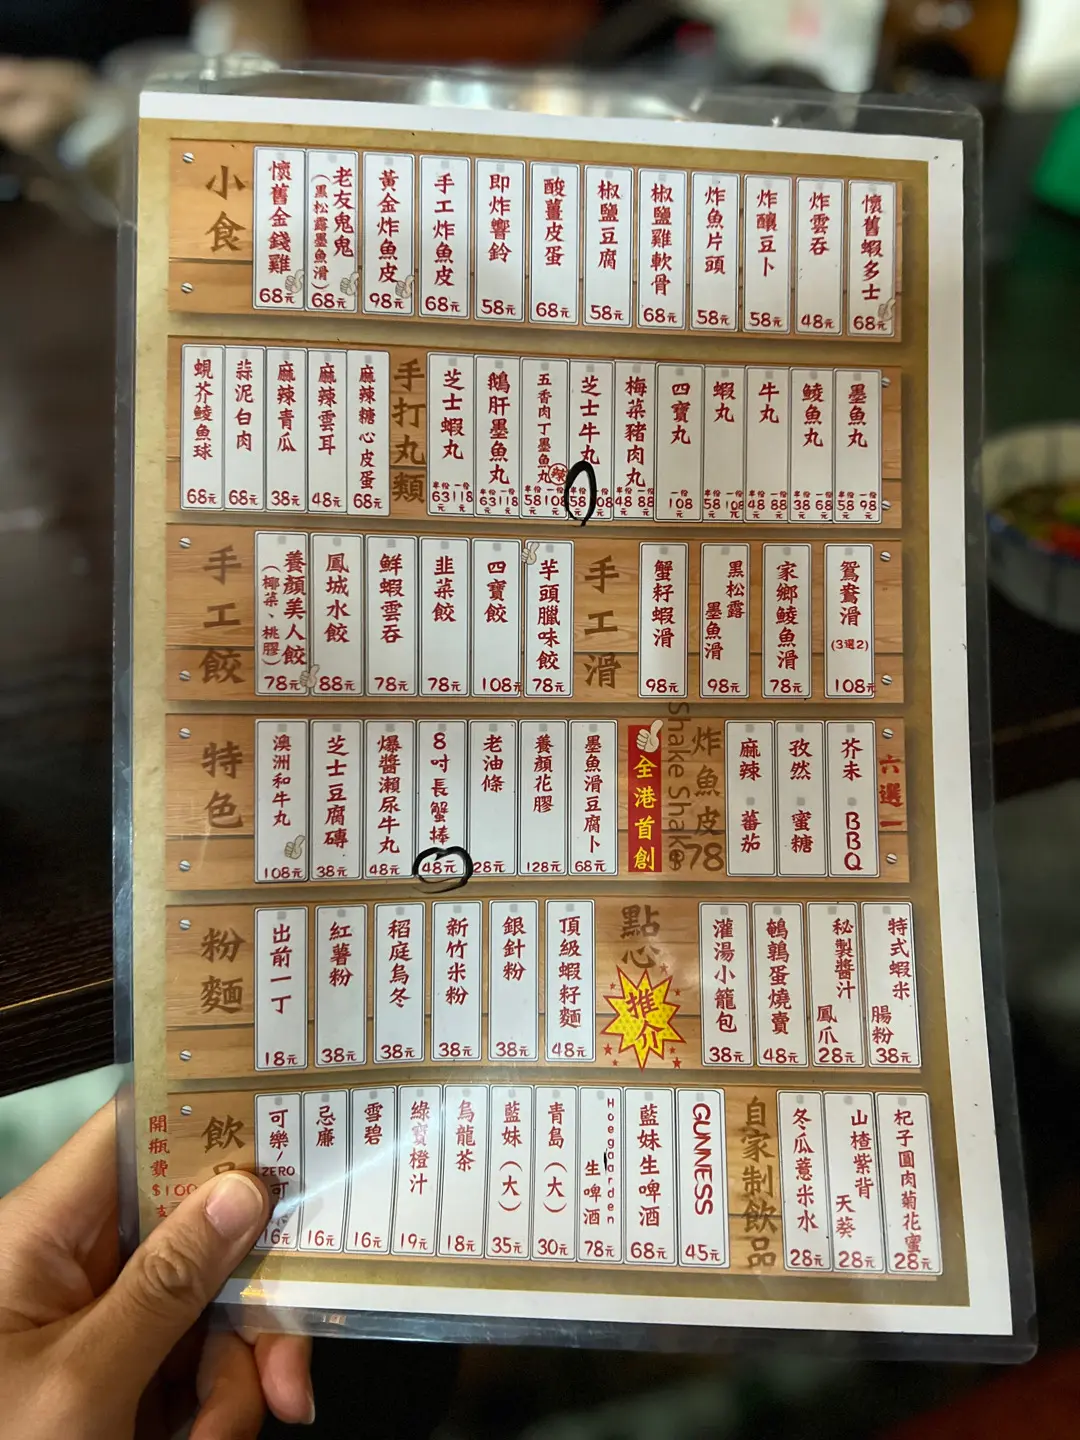 小食
懷舊金錢雞 68元
老友鬼鬼 (黑松露墨魚滑) 68元
黃金炸魚皮 98元
手工炸魚皮 68元
即炸響鈴 58元
酸薑皮蛋 68元
椒鹽豆腐 58元
椒鹽雞軟骨 68元
炸魚片頭 58元
炸釀豆卜 58元
炸雲吞 48元
懷舊蝦多士 68元
蜆芥鯪魚球 68元
蒜泥白肉 68元
麻辣青瓜 38元
麻辣雲耳 48元
麻辣糖心皮蛋 68元
手打丸類
芝士蝦丸 半份63元 一份118元
鵝肝墨魚丸 半份63元 一份118元
五香肉丁墨魚丸 辣 半份58元 一份108元
芝士牛丸 半份58元 一份108元
梅菜豬肉丸 半份48元 一份88元
四寶丸 一份108元
蝦丸 半份58元 一份108元
牛丸 半份48元 一份88元
鯪魚丸 半份38元 一份68元
墨魚丸 半份58元 一份98元
手工餃
養顏美人餃 (椰菜、桃膠) 78元
鳳城水餃 88元
鮮蝦雲吞 78元
韭菜餃 78元
四寶餃 108元
芋頭臘味餃 78元
手工滑
蟹籽蝦滑 98元
黑松露墨魚滑 98元
家鄉鯪魚滑 78元
鴛鴦滑 (3選2) 108元
特色
澳洲和牛丸 108元
芝士豆腐磚 38元
爆醬瀨尿牛丸 48元
8吋長蟹棒 48元
老油條 28元
養顏花膠 128元
墨魚滑豆腐卜 68元
全港首創
炸魚皮 $78
Shake Shake
麻辣 蕃茄
孜然 蜜糖
芥末 BBQ
六選一
粉麵
出前一丁 18元
紅薯粉 38元
稻庭烏冬 38元
新竹米粉 38元
銀針粉 38元
頂級蝦籽麵 48元
點心
推介
灌湯小籠包 38元
鵪鶉蛋燒賣 48元
秘製醬汁鳳爪 28元
特式蝦米腸粉 38元
開瓶費 $100
飲
可樂/ ZERO可 16元
忌廉 16元
雪碧 16元
綠寶橙汁 19元
烏龍茶 18元
藍妹(大) 35元
青島(大) 30元
Hoegaarden 生啤酒 78元
藍妹生啤酒 68元
GUNNESS 45元
自家制飲品
冬瓜薏米水 28元
山楂紫背天葵 28元
杞子圓肉菊花蜜 28元